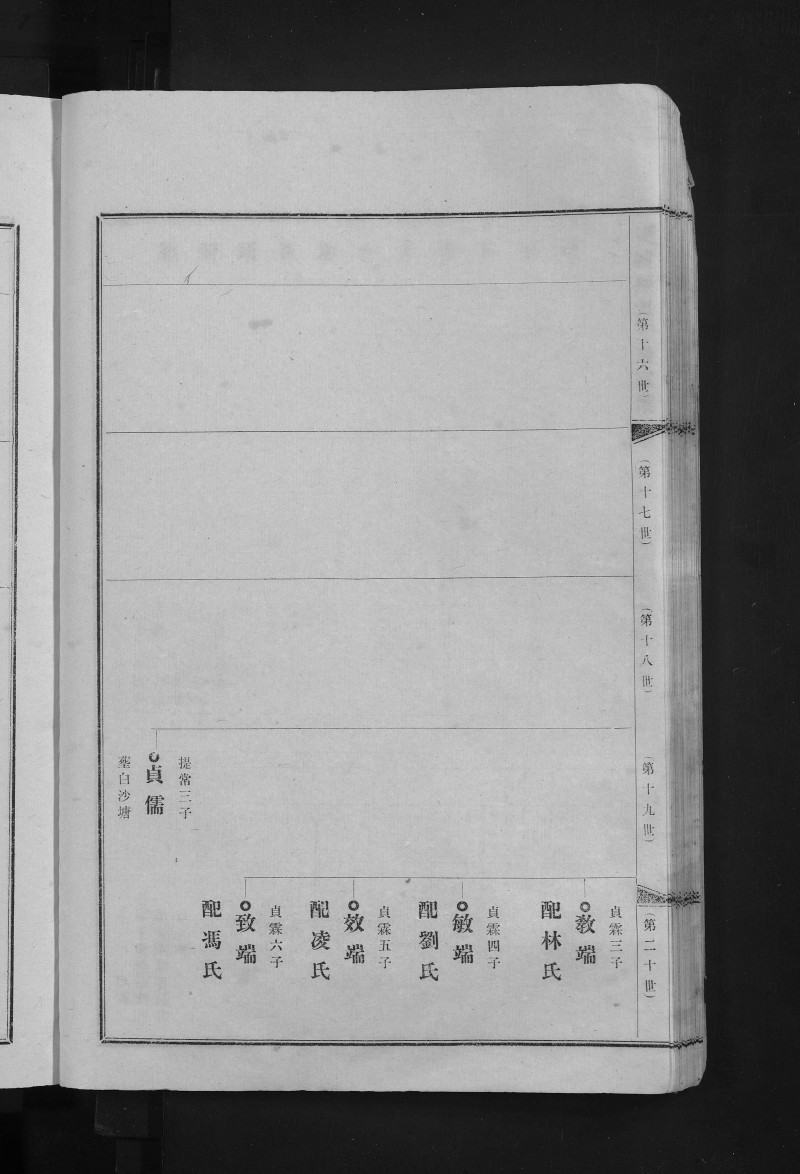 (第十六世)
(第十七世)
(第十八世)
(第十九世)
(第二十世)
提常三子
貞儒
塟白沙塘
貞霖三子
教端
配林氏
貞霖四子
敏端
配劉氏
貞霖五子
效端
配凌氏
貞霖六子
致端
配馮氏